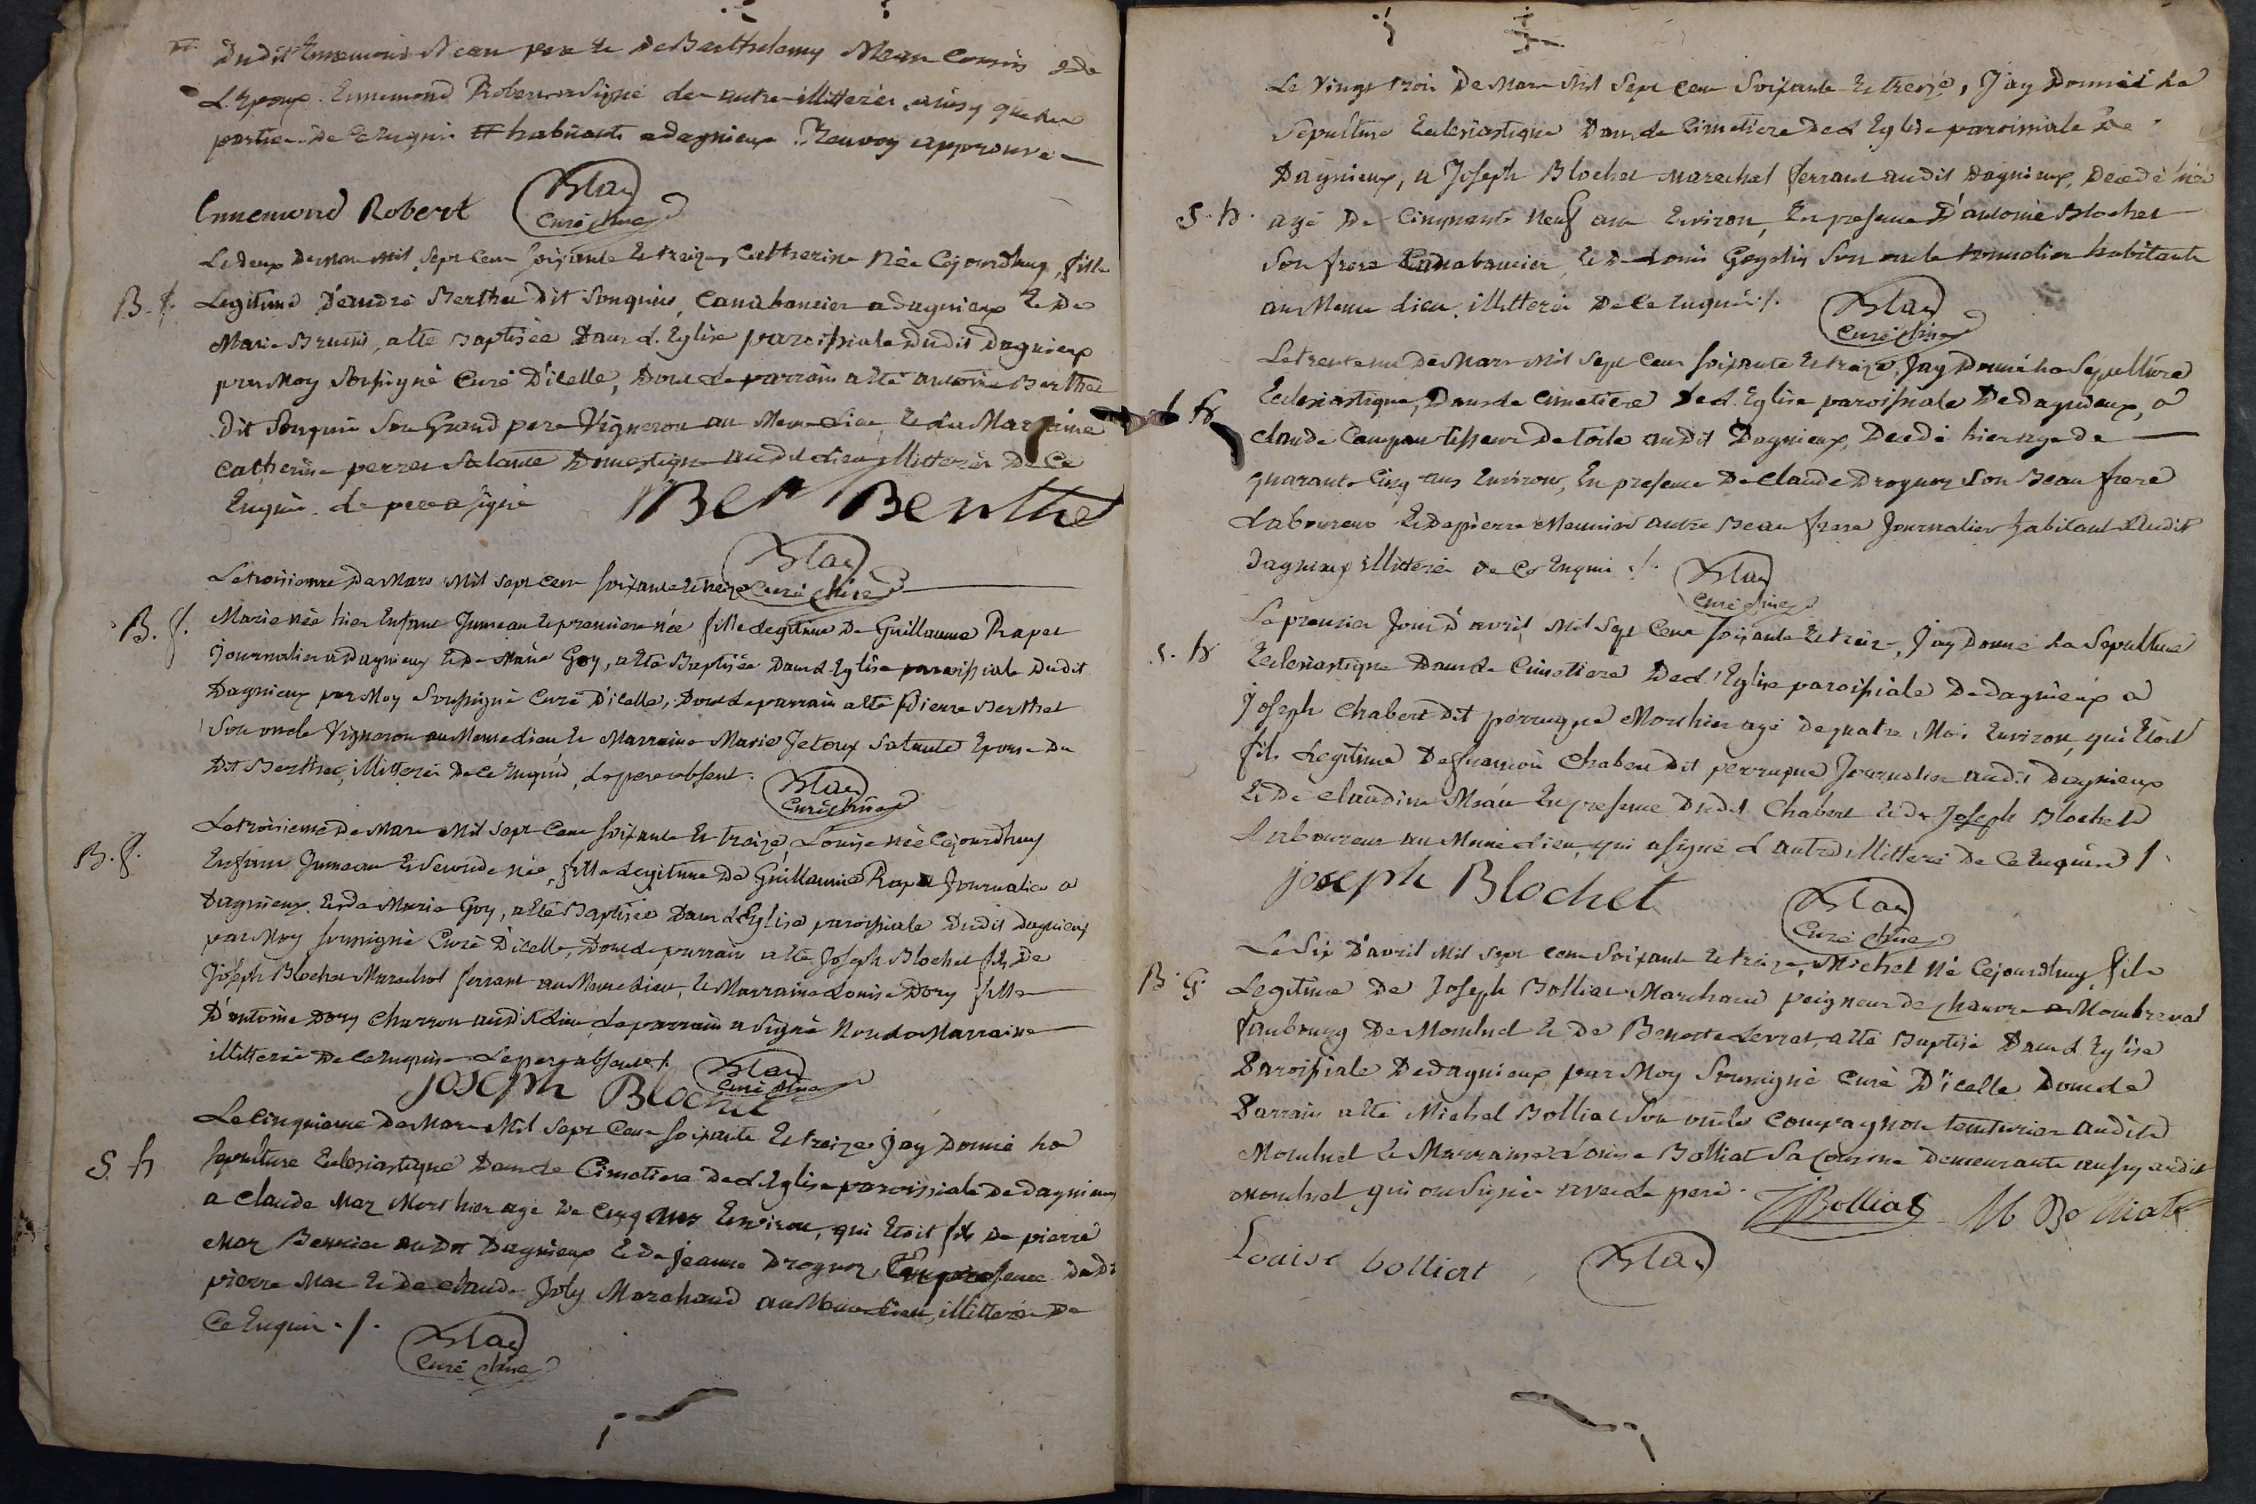 Dudit Ennemond Mean pere et de Barthelemy Mean Cousin
L'Epoux. Ennemond Robert a signé les autres illitterés ainsy que les
parties De ce enquis # habitants a dagnieux Renvoy approuvé
Ennemond Robert
Blay
Curé
Le deux De mars mil sept cens soixante et treize, Catherine Née Cejourdhuy, fille
B. f. Legitime D'andré Berthet Dit Songuin, Canabancier a dagnieux et De
Marie Brunis, a été Baptisée Dans L'Eglise paroissiale Dudit Dagnieux
par Moy soussigné Curé D'icelle, Dont Le parrain a été antoine Berthet
Dit Songuin Son Grand pere Vigneron au Meme Lieu, et La Marraine
Catherine perret Sa tante Domestique audit Lieu illitterés De Ce
Enquis. Le pere a signé
Berthet
Blay
Curé
Le troisieme De Mars Mil sept cens soixante et treize
B. f. Marie née hier Enfant Jumeau et premiere née fille Legitime De Guillaume Rapet
Journalier a Dagnieux et De Marie Goy, a été Baptisée Dans L'Eglise paroissiale Dudit
Dagnieux par Moy Soussigné Curé D'icelle, Dont Le parrain a été Pierre Berthet
Son oncle Vigneron au Meme Lieu et Marraine Marie Jetoux Sa tante Epouse Du
Dit Berthet, illitterés De Ce Enquis, Le pere absent.
Blay
Curé
Le troisieme De Mars Mil sept Cens soixante et treize, Louise née Cejourdhuy
B. f. Enfant Jumeau et Seconde née, fille Legitime De Guillaume Rapet Journalier a
Dagnieux et De Marie Goy, a été Baptisée Dans L'Eglise paroissiale Dudit Dagnieux
par Moy soussigné Curé D'icelle, Dont Le parrain a été Joseph Blochet fils De
Joseph Blochet Marechal ferrant au Meme Lieu, et Marraine Louise Dory fille
D'antoine Dory Charron audit Lieu Le parrain a Signé Non La Marraine
illitterée De Ce Enquise Le pere absent ./.
Joseph Blochet
Blay
Curé
Le Cinquieme De Mars Mil sept Cens soixante et treize, Jay Donné La
S. h Sepulture Eclesiastique Dans Le Cimetiere De L'Eglise paroissiale De Dagnieux
a Claude Mar Mort hier agé De Cinq ans Environ, qui Etoit fils De pierre
Mar audit Dagnieux et De Jeanne Droguoz, En presence Dudit
pierre Mar et De Claude Joly Marchand au Meme Lieu, illitterés De
Ce Enquis ./.
Blay
Curé
Le Vingt trois De Mars Mil Sept Cens Soixante et treize, J'ay Donné La
Sepulture Eclesiastique Dans Le Cimetiere De L'Eglise paroissiale De
Dagnieux, a Joseph Blochet Marechal ferrant audit Dagnieux, Decedé hier
S. h. agé De Cinquante Neuf ans Environ, En presence D'antoine Blochet
Son frere Canabancier, et De Louis Son oncle habitants
au Meme Lieu, illitterés De Ce Enquis ./.
Blay
Curé
Le trente un De Mars Mil sept Cens soixante et treize, Jay Donné La Sepulture
S. h Eclesiastique, Dans Le Cimetiere De L'Eglise paroissiale De dagnieux, a
Claude Campan tisseur De toile audit Dagnieux, Decedé hier age De
quarante Cinq ans Environ, En presence De Claude Droguoz Son Beau frere
Laboureur et De pierre Meunier autre Beau frere Journalier habitants Dudit
Dagnieux illitterés De Ce Enquis ./.
Blay
Curé
Le premier Jour D'avril Mil Sept Cens soixante et treize, J'ay Donné La Sepulture
S. h Eclesiastique Dans Le Cimetiere De L'Eglise paroissiale De dagnieux a
Joseph Chabert dit perruque Mort hier agé De quatre Mois Environ, qui Etoit
fils Legitime De francois Chabert Dit perruque Journalier audit Dagnieux
et De Claudine Mean En presence Dudit Chabert et De Joseph Blochet
Laboureur au Meme Lieu, qui a signé L'autre illitteré De Ce Enquis ./.
Joseph Blochet
Blay
Curé
Le Six D'avril Mil Sept Cens Soixante et treize, Michel Né Cejourdhuy, fils
B. G. Legitime De Joseph Bolliat Marchand peigneur de Chanvre a Mombreval
faubourg De Montluel et De Benoite Levrat, a été Baptisé Dans L'Eglise
Paroissiale De dagnieux par Moy Soussigné Curé D'icelle Dont Le
Parrain a été Michel Bolliat Son oncle Compagnon teinturier audit
Montluel et Marraine Louise Bolliat Sa Cousine Demeurante aussy audit
Montluel qui ont Signé avec Le pere.
J Bolliat M Bolliat
Louise bolliat
Blay